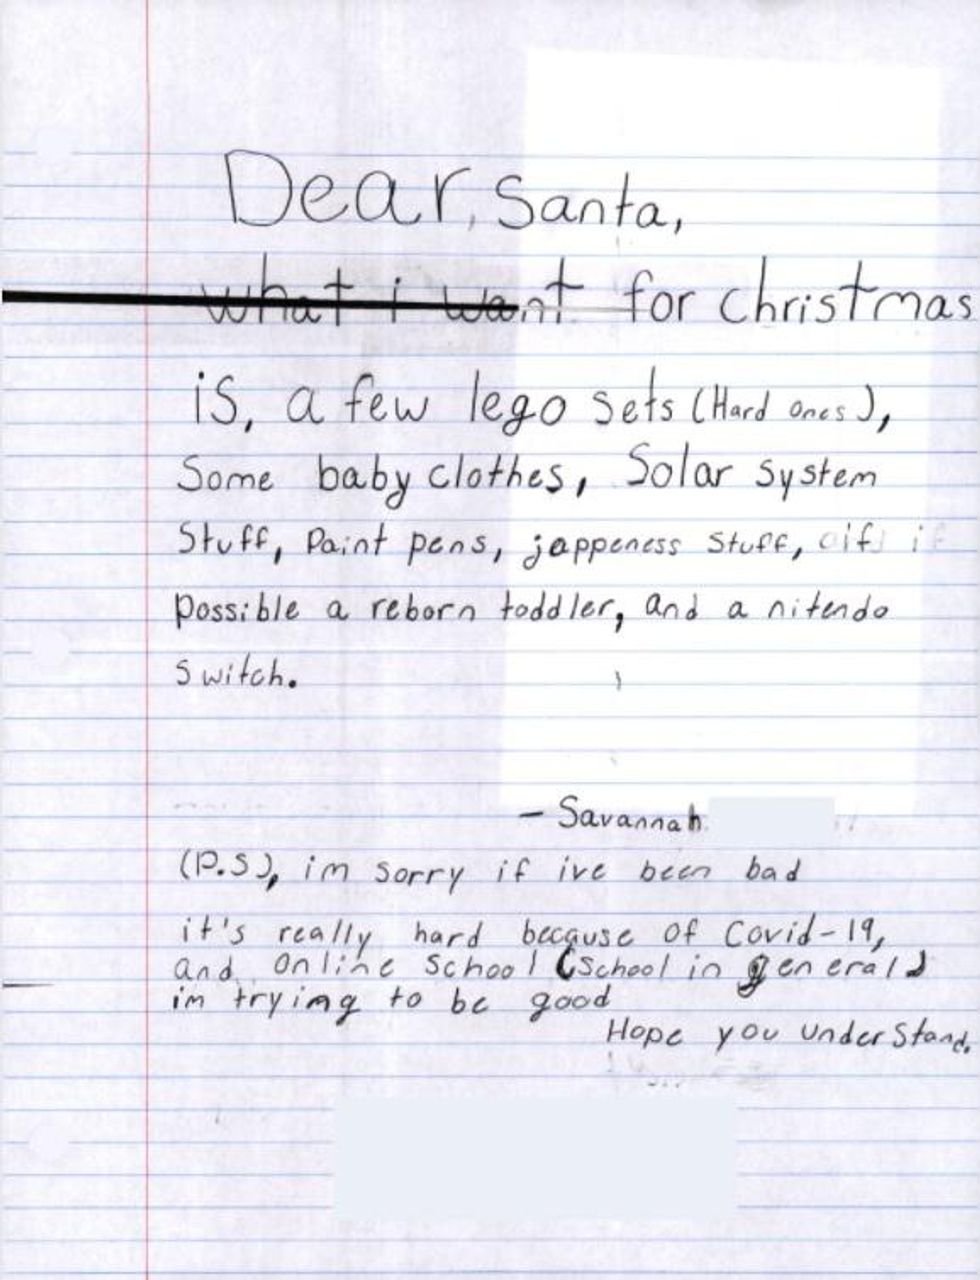 Dear, Santa,
what i want for christmas
is, a few lego sets (Hard ones),
Some baby clothes, Solar system
Stuff, Paint pens, jappeness stuff, if
possible a reborn toddler, and a nitendo
switch.
- Savannah
(P.S), im sorry if ive been bad
it's really hard because of Covid-19,
and online school (school in general)
im trying to be good
Hope you understand.